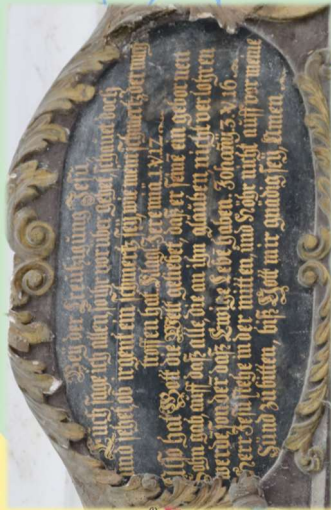 Bey der Creutzigung Jesu.
Euch sage ich allen die ihr vorüber gehet, schauet doch
und sehet ob irgent ein schmertz sey wie mein schmertz der mich
troffen hat. Klag. Jeremia. 1. V. 12.
Also hat Gott die Welt geliebet, daß er seinē ein gebornen
Sohn gab, auff daß alle die an ihn glauben nicht verlohren
werdē sondern daß Ewige Leben haben. Johan̄is. 3. V. 16.
Herr Jesu stehe in der mitten, und höhr nicht auff vor meine
Sünd zu bitten, biß Gott mir gnädig sey, Amen.